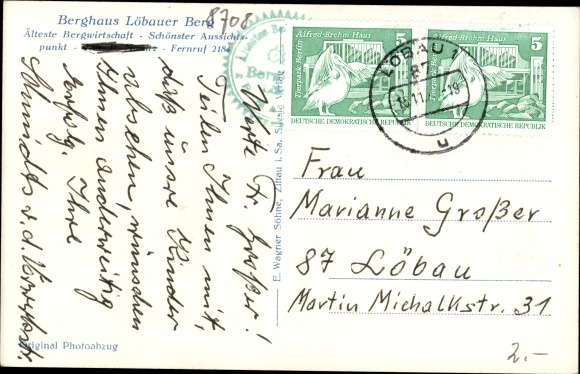 Berghaus Löbauer Berg
8708
Älteste Bergwirtschaft - Schönster Aussichts-
punkt - Fernruf 2184
Werte Fr. Großer!
Teilen Ihnen mit,
daß unsre Kinder
absehen, wünschen
Ihnen anderweitig
Erfolg. Ihre
Schmidts v. d.
Original Photoabzug
E. Wagner Söhne, Zittau i. Sa.
Alfred-Brehm-Haus 5
Tierpark Berlin
DEUTSCHE DEMOKRATISCHE REPUBLIK
Alfred-Brehm-Haus 5
Tierpark Berlin
DEUTSCHE DEMOKRATISCHE REPUBLIK
LÖBAU 1
87
u
Frau
Marianne Großer
87 Löbau
Martin Michalkstr. 31
2.-